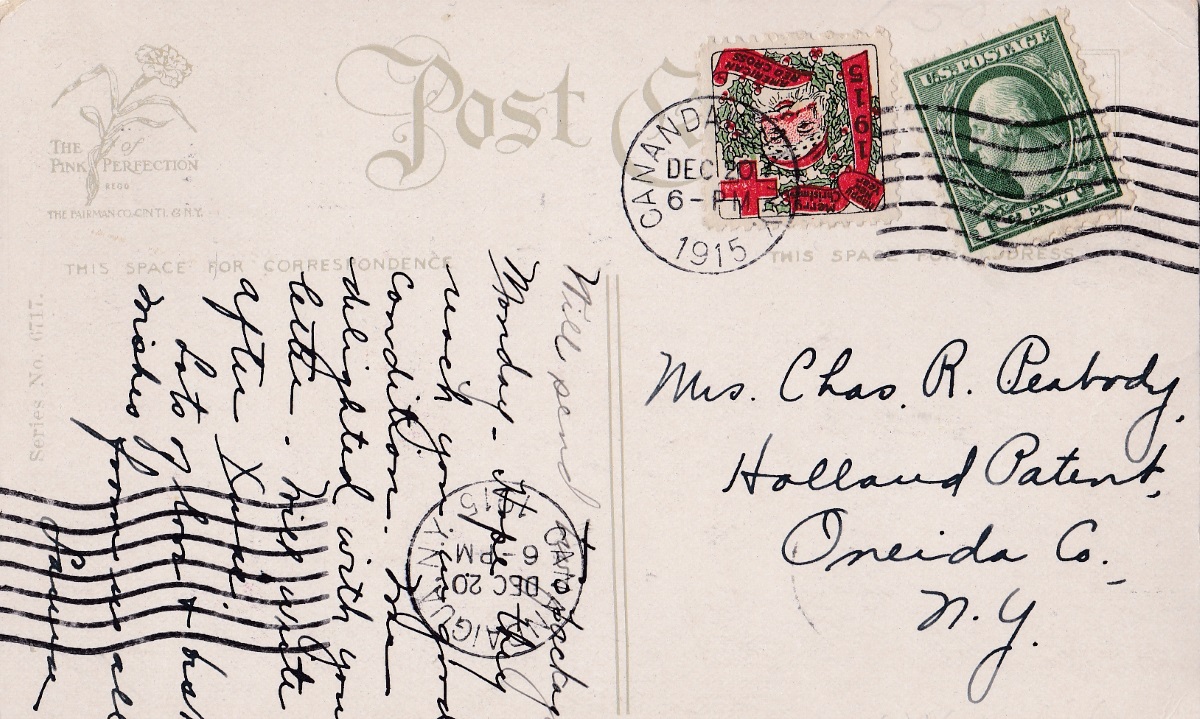 THE
PINK of PERFECTION
REGD
THE FAIRMAN CO. CIN'TI. & N.Y.
Post
AMERICAN
RED CROSS
1915
CANANDA
DEC 20
6-PM
1915
U.S. POSTAGE
1 CENT 1
THIS SPACE FOR CORRESPONDENCE
THIS SPACE FOR ADDRESS
Series No. 6717.
Will send
Monday - Hope they
reach you in good
condition.
delighted with you
letter. Will write
after Xmas
Lots of love +
wishes from us all
Mrs. Chas. R. Peabody,
Holland Patent,
Oneida Co.
N.Y.
AIGUA N.Y.
DEC 20
6-PM
1915